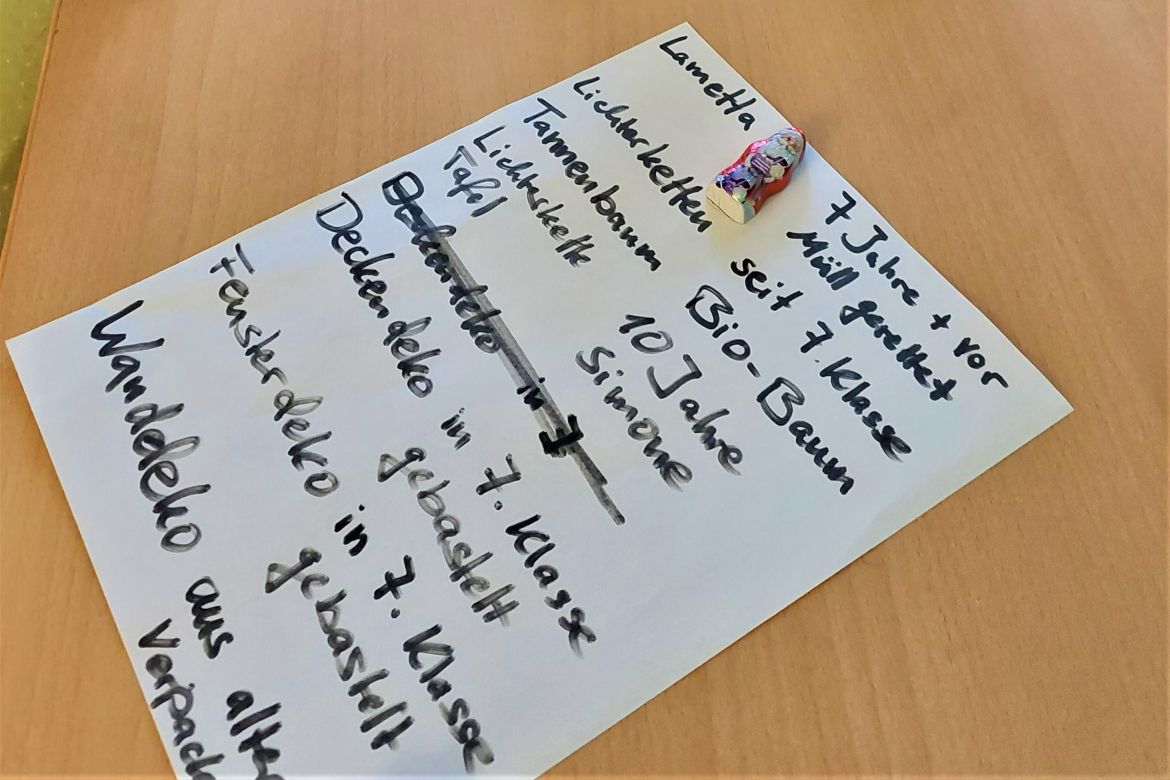 Lametta 7 Jahre + vor
Müll gerettet
Lichterketten seit 7. Klasse
Tannenbaum Bio-Baum
Lichterkette 10 Jahre
Tafel Simone
in 7
Deckendeko in 7. Klasse
gebastelt
Fensterdeko in 7. Klasse
gebastelt
Wanddeko aus alte
Verpack